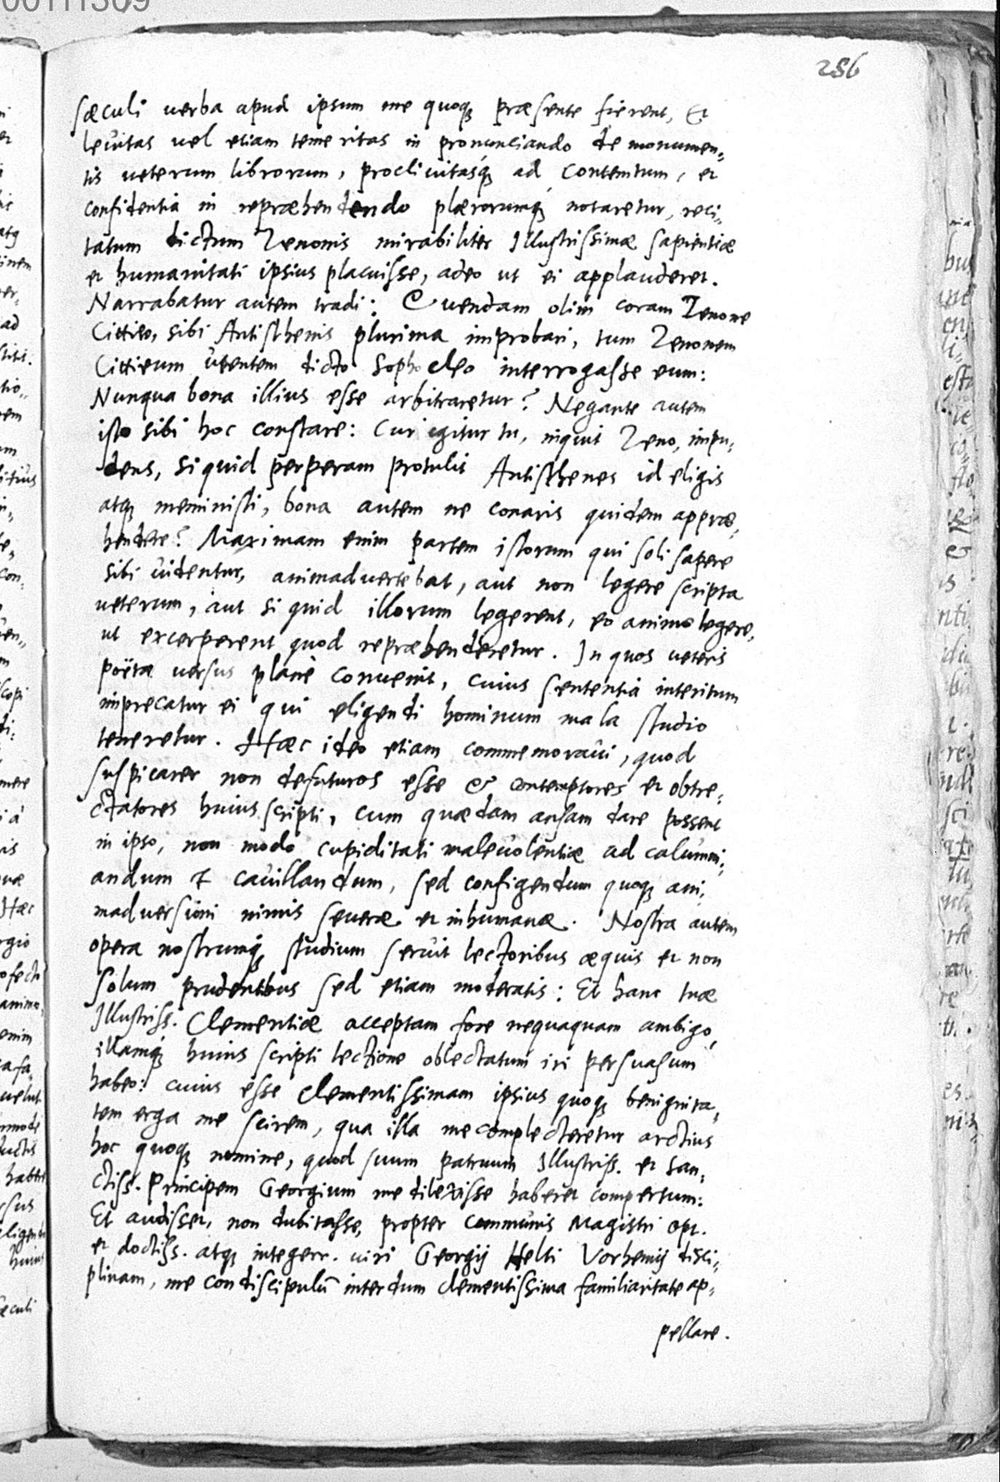 00111309
256
sæculi verba apud ipsum me quoq; præsente fierent, Et
levitas vel etiam temeritas in pronunciando de monumen-
tis veterum librorum, proclivitasq́; ad contemtum, et
confidentia in repræhendendo plærorumq́; notaretur, reci-
tatum dictum Zenonis mirabiliter Illustrissimæ sapientiæ
et humanitati ipsius placuisse, adeo ut ei applauderet.
Narrabatur autem tradi: Quendam olim coram Zenone
Cittieo, sibi Antisthenis plurima improbari, tum Zenonem
Cittieum utentem dicto Sophocleo interrogasse eum:
Nunqua bona illius esse arbitraretur? Negante autem
isto sibi hoc constare: Cur igitur tu, inquit Zeno, impu-
dens, si quid perperam protulit Antisthenes id eligis
atq; meministi, bona autem ne conaris quidem appræ-
hendere? Maximam enim partem istorum qui soli sapere
sibi videntur, animadvertebat, aut non legere scripta
veterum, aut si quid illorum legerent, eo animo legere,
ut excerperent quod repræhenderetur. In quos veteris
poëtæ versus planè convenit, cuius sententia interitum
imprecatur ei qui eligendi hominum mala studio
teneretur. Hæc ideo etiam commemoravi, quod
suspicarer non defuturos esse & contemptores et obtre-
ctatores huius scripti, cum quædam ansam dare possent
in ipso, non modo cupiditati malevolentiæ ad calumni-
andum & cavillandum, sed configendum quoq; ani-
madversioni nimis severæ et inhumanæ. Nostra autem
opera nostrumq́; studium servit lectoribus æquis et non
solum prudentibus sed etiam moderatis: Et hanc tuæ
Illustriss. Clementiæ acceptam fore nequaquam ambigo,
illamq́; huius scripti lectione oblectatum iri persuasum
habeo: cuius esse clementissimam ipsius quoq; benignita-
tem erga me scirem, qua illa me complecteretur arctius
hoc quoq; nomine, quod suum patruum Illustriss. et san-
ctiss. Principem Georgium me dilexisse haberet compertum:
Et audisset, non dubitasse, propter communis Magistri opt.
et doctiss. atq; integerr. viri Georgij Helti Vorhemij disci-
plinam, me condiscipulū interdum clementissima familiaritate ap-
pellare.